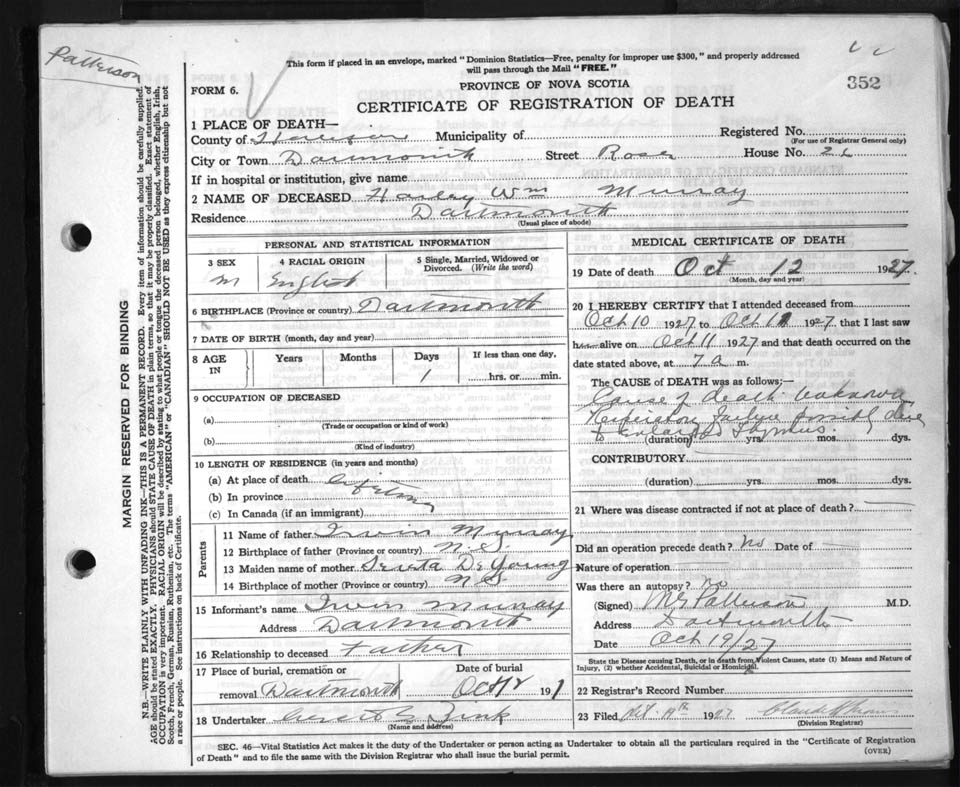 Patterson
This form if placed in an envelope, marked "Dominion Statistics—Free, penalty for improper use $300," and properly addressed
will pass through the Mail "FREE."
352
FORM 6.
PROVINCE OF NOVA SCOTIA
CERTIFICATE OF REGISTRATION OF DEATH
1 PLACE OF DEATH—
County of Municipality of Registered No.
(For use of Registrar General only)
City or Town Dartmouth Street Rose House No.
If in hospital or institution, give name
2 NAME OF DECEASED Harley Wm Murray
Residence Dartmouth
(Usual place of abode)
PERSONAL AND STATISTICAL INFORMATION
3 SEX 4 RACIAL ORIGIN 5 Single, Married, Widowed or
Divorced. (Write the word)
M English
6 BIRTHPLACE (Province or country) Dartmouth
7 DATE OF BIRTH (month, day and year)
8 AGE IN Years Months Days If less than one day,
1 hrs. or min.
9 OCCUPATION OF DECEASED
(a)
(Trade or occupation or kind of work)
(b)
(Kind of industry)
10 LENGTH OF RESIDENCE (in years and months)
(a) At place of death lifetime
(b) In province
(c) In Canada (if an immigrant)
Parents
11 Name of father Irvin Murray
12 Birthplace of father (Province or country) N.S.
13 Maiden name of mother De Young
14 Birthplace of mother (Province or country) N.S.
15 Informant's name Irvin Murray
Address Dartmouth
16 Relationship to deceased Father
17 Place of burial, cremation or Date of burial
removal Dartmouth Oct 12 191
18 Undertaker Zink
(Name and address)
MEDICAL CERTIFICATE OF DEATH
19 Date of death Oct 12 1927.
(Month, day and year)
20 I HEREBY CERTIFY that I attended deceased from
Oct 10 1927 to Oct 11 1927, that I last saw
h alive on Oct 11 1927 and that death occurred on the
date stated above, at 7 a m.
The CAUSE OF DEATH was as follows;—
Cause of death unknown
Respiratory failure possibly due
to enlarged Thymus.
(duration) yrs. mos. dys.
CONTRIBUTORY
(duration) yrs. mos. dys.
21 Where was disease contracted if not at place of death?
Did an operation precede death? No Date of
Nature of operation
Was there an autopsy? No
(Signed) Patterson M.D.
Address Dartmouth
Date Oct 19/27
State the Disease causing Death, or in death from Violent Causes, state (1) Means and Nature of
Injury, (2) whether Accidental, Suicidal or Homicidal.
22 Registrar's Record Number
23 Filed Oct. 19th 1927
(Division Registrar)
SEC. 46—Vital Statistics Act makes it the duty of the Undertaker or person acting as Undertaker to obtain all the particulars required in the "Certificate of Registration
of Death" and to file the same with the Division Registrar who shall issue the burial permit.
(OVER)
MARGIN RESERVED FOR BINDING
N.B.—WRITE PLAINLY WITH UNFADING INK—THIS IS A PERMANENT RECORD. Every item of information should be carefully supplied.
AGE should be stated EXACTLY. PHYSICIANS should STATE CAUSE OF DEATH in plain terms, so that it may be properly classified. Exact statement of
OCCUPATION is very important. RACIAL ORIGIN will be described by stating to what people or tongue the deceased person belonged, whether English, Irish,
Scotch, French, German, Russian, Ruthenian, etc. The terms "AMERICAN" or "CANADIAN" SHOULD NOT BE USED as they express citizenship but not
a race or people. See instructions on back of Certificate.